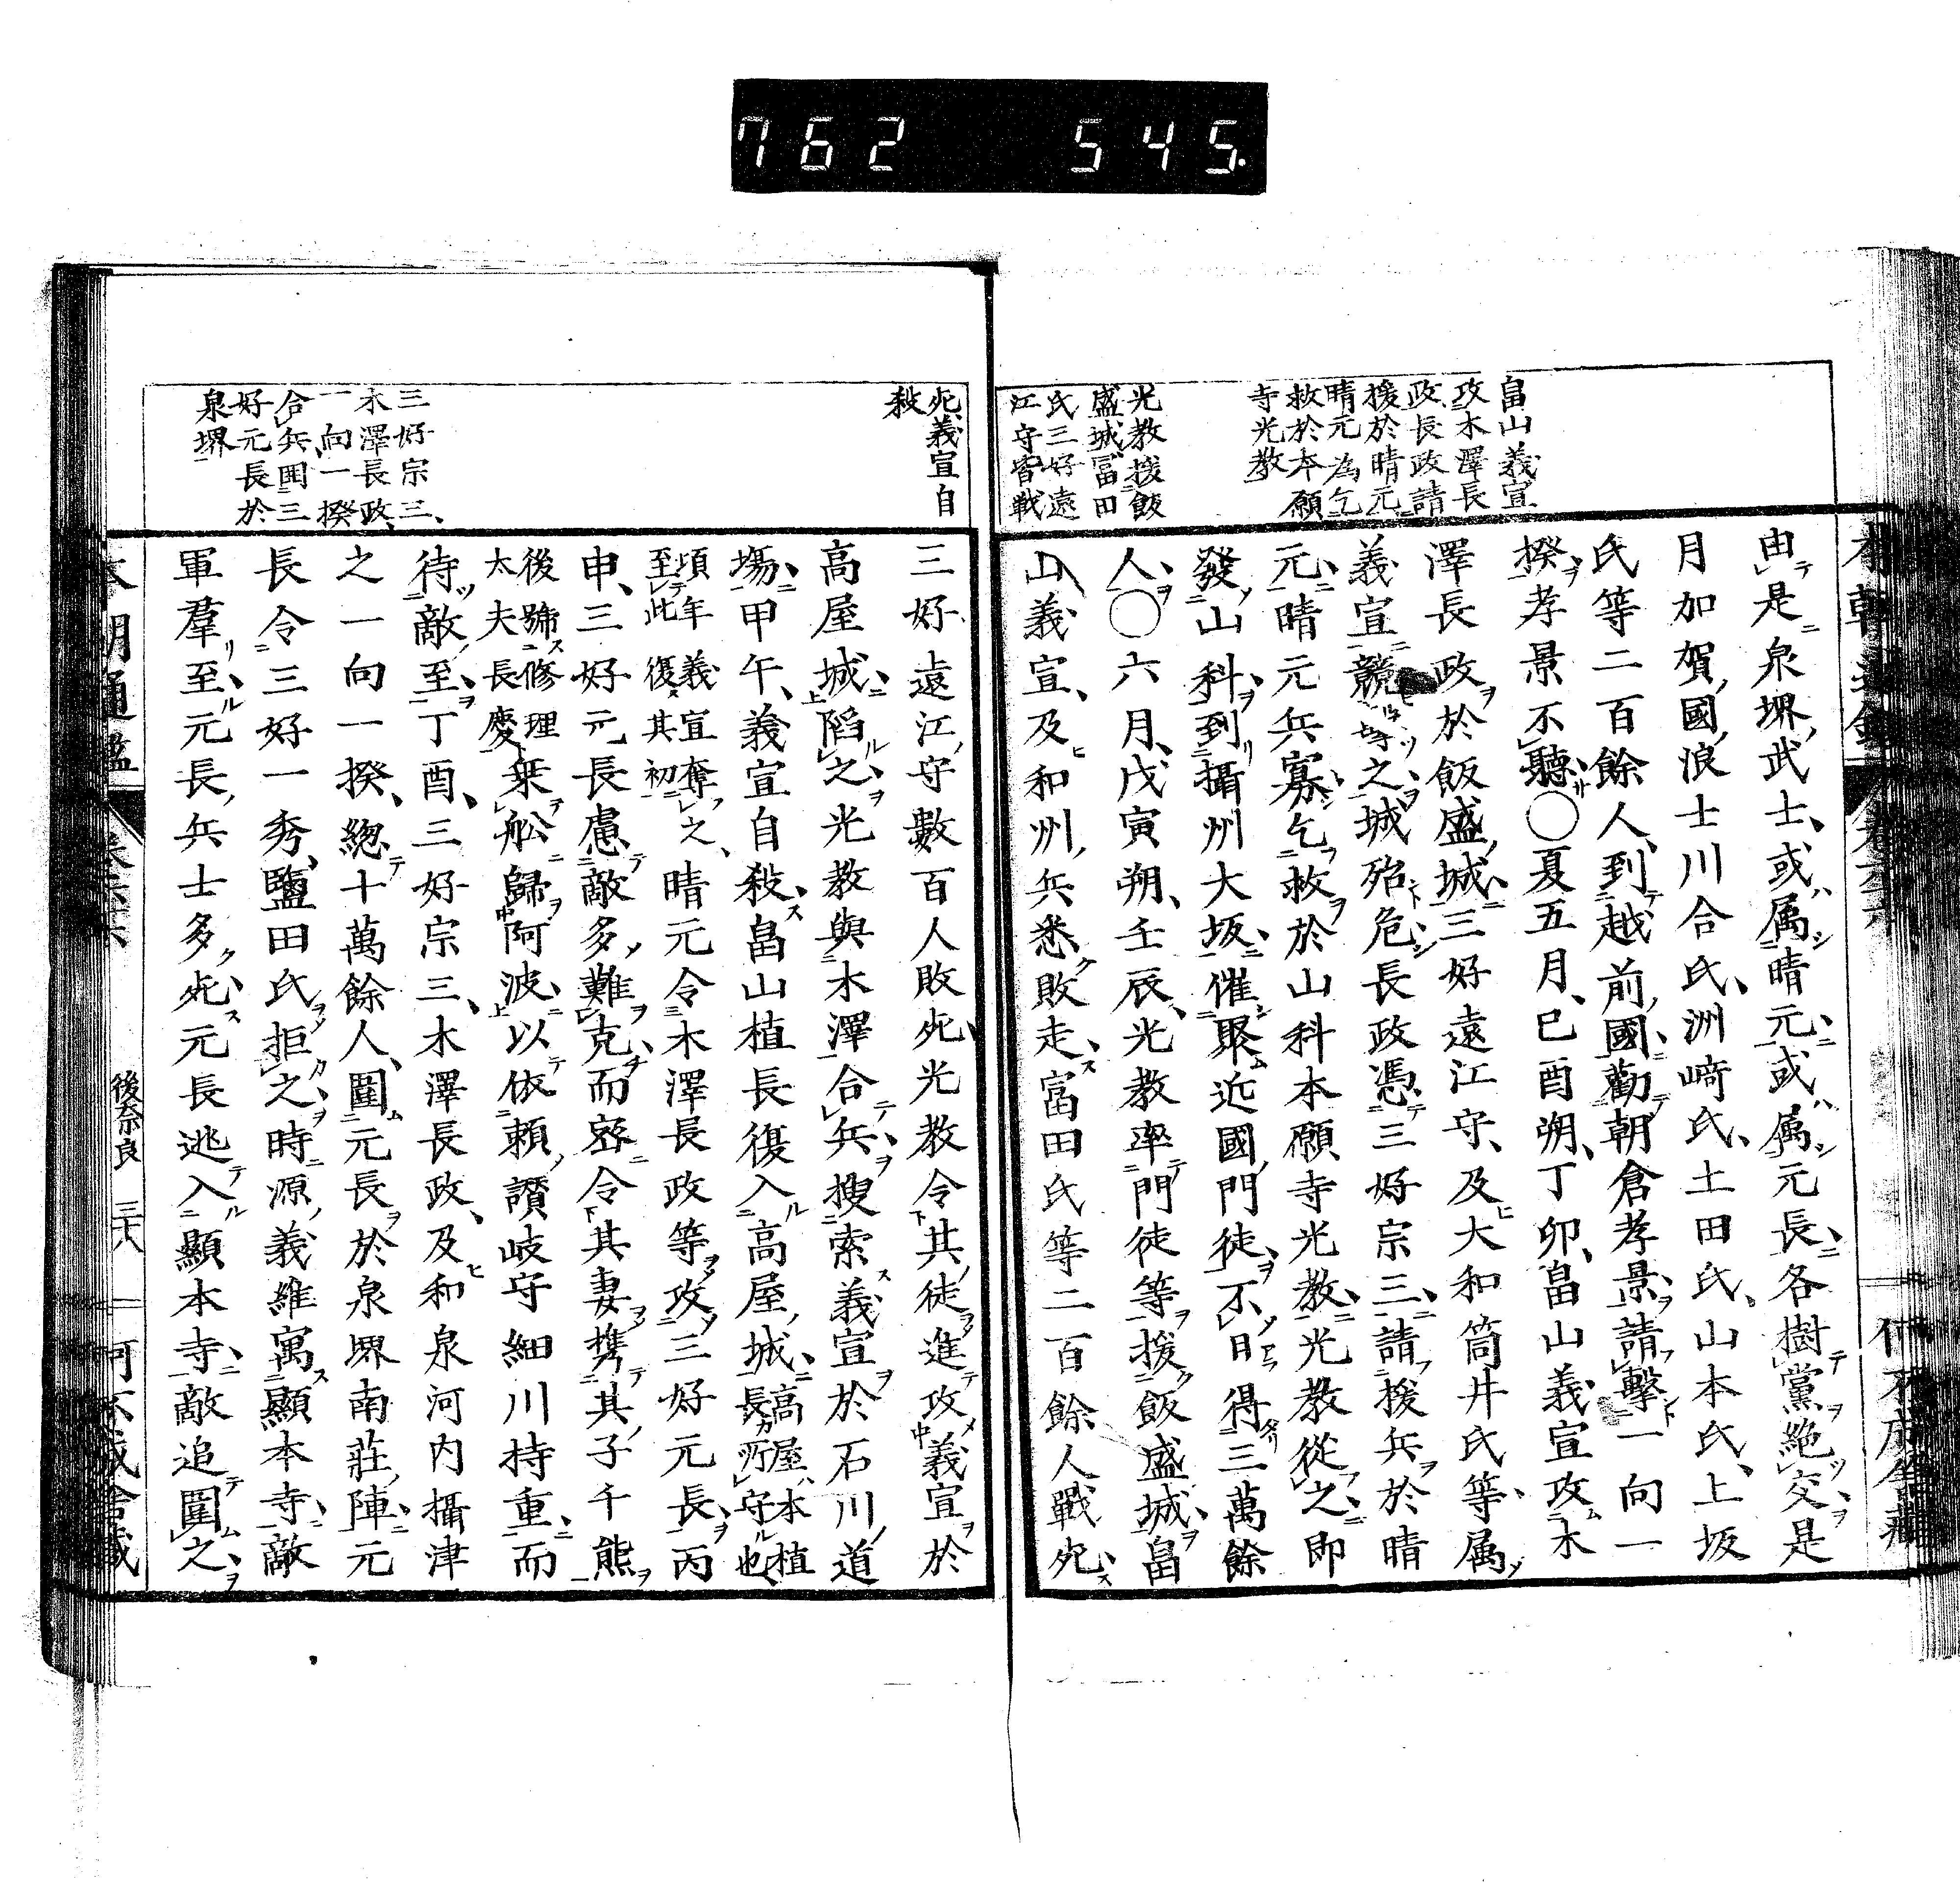 762 545
畠山義宣
攻木澤長
政長政請
援於晴元
晴元為乞
救於本願
寺光教
光教援飯
盛城富田
氏三好遠
江守皆戰
由是泉堺武士或属晴元或属元長各樹黨絶交是
月加賀國浪士川合氏洲﨑氏土田氏山本氏上坂
氏等二百餘人到越前國勸朝倉孝景請擊一向一
揆孝景不聽○夏五月己酉朔丁卯畠山義宣攻木
澤長政於飯盛城三好遠江守及大和筒井氏等属
義宣競之城殆危長政憑三好宗三請援兵於晴
元晴元兵寡乞救於山科本願寺光教光教從之即
發山科到攝州大坂催聚近國門徒不日得三萬餘
人○六月戊寅朔壬辰光教率門徒等援飯盛城畠
山義宣及和州兵悉敗走富田氏等二百餘人戰死
死義宣自
殺
三好宗三
木澤長政
一向一揆
合兵囲三
好元長於
泉堺
三好遠江守數百人敗死光教令其徒進攻義宣於
高屋城陷之光教與木澤合兵搜索義宣於石川道
場甲午義宣自殺畠山植長復入高屋城高屋本植長所守也
頃年義宣奪之至此復其初晴元令木澤長政等攻三好元長丙
申三好元長慮敵多難克而密令其妻携其子千熊
後號修理太夫長慶乗舩歸阿波以依頼讃岐守細川持重而
待敵至丁酉三好宗三木澤長政及和泉河内攝津
之一向一揆總十萬餘人圍元長於泉堺南莊陣元
長令三好一秀鹽田氏拒之時源義維寓顯本寺敵
軍羣至元長兵士多死元長逃入顯本寺敵追圍之
本朝通鑑
後奈良
三十八